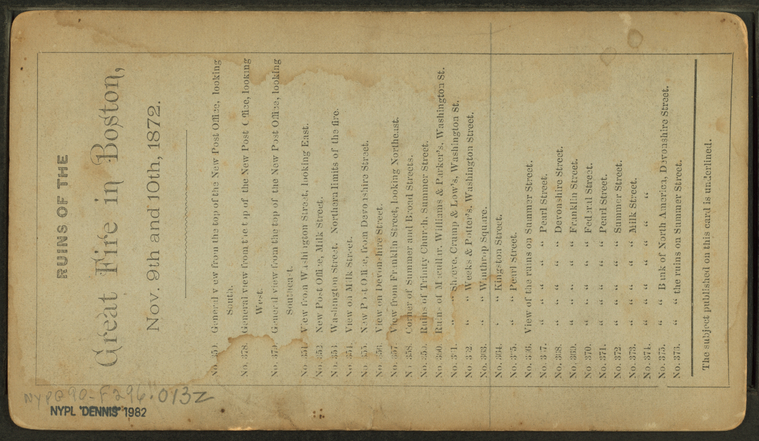 RUINS OF THE
Great Fire in Boston,
Nov. 9th and 10th, 1872.
General view from the top of the New Post Office, looking
South.
No. 378. General view from the top of the New Post Office, looking
West.
General view from the top of the New Post Office, looking
Southeast.
No. 351. View from Washington Street, looking East.
No. 352. New Post Office, Milk Street.
No. 353. Washington Street. Northern limits of the fire.
No. 354. View on Milk Street.
No. 355. New Post Office, from Devonshire Street.
No. 356. View on Devonshire Street.
No. 357. View from Franklin Street, looking Northeast.
No. 358. Corner of Summer and Broad Streets.
No. 359. Ruins of Trinity Church, Summer Street.
No. 360. Ruins of Macullar, Williams & Parker's, Washington St.
No. 361. " " Shreve, Crump & Low's, Washington St.
No. 362. " " Weeks & Potter's, Washington Street.
No. 363. " " Winthrop Square.
No. 364. " " Kingston Street.
No. 365. " " Pearl Street.
No. 366. View of the ruins on Summer Street.
No. 367. " " " " " Pearl Street.
No. 368. " " " " " Devonshire Street.
No. 369. " " " " " Franklin Street.
No. 370. " " " " " Federal Street.
No. 371. " " " " " Pearl Street.
No. 372. " " " " " Summer Street.
No. 373. " " " " " Milk Street.
No. 374. " " " " " " "
No. 375. " " Bank of North America, Devonshire Street.
No. 376. " " the ruins on Summer Street.
The subject published on this card is underlined.
NYPG90-F296 0132
NYPL "DENNIS" 1982